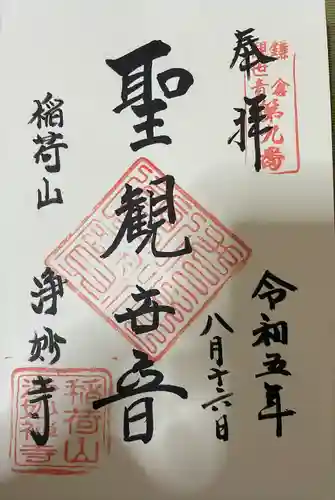 奉拝
鎌倉
観世音
第九番
令和五年
八月十六日
聖観世音
稲荷山 浄妙寺
稲荷山
浄妙禅寺